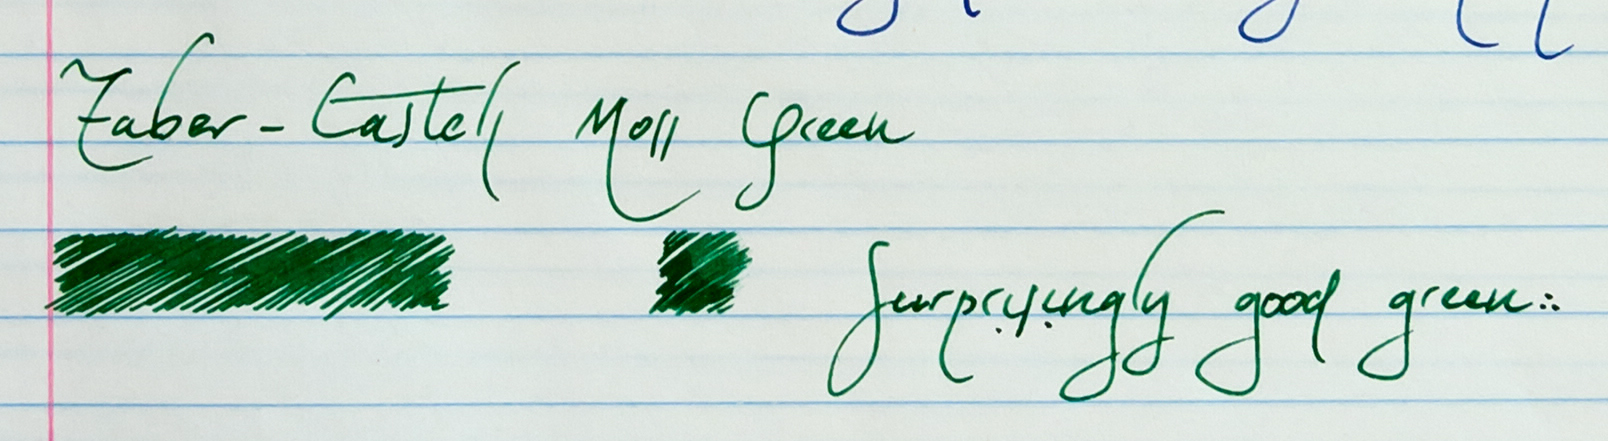 Faber-Castell Moss Green
Surprisingly good green:.